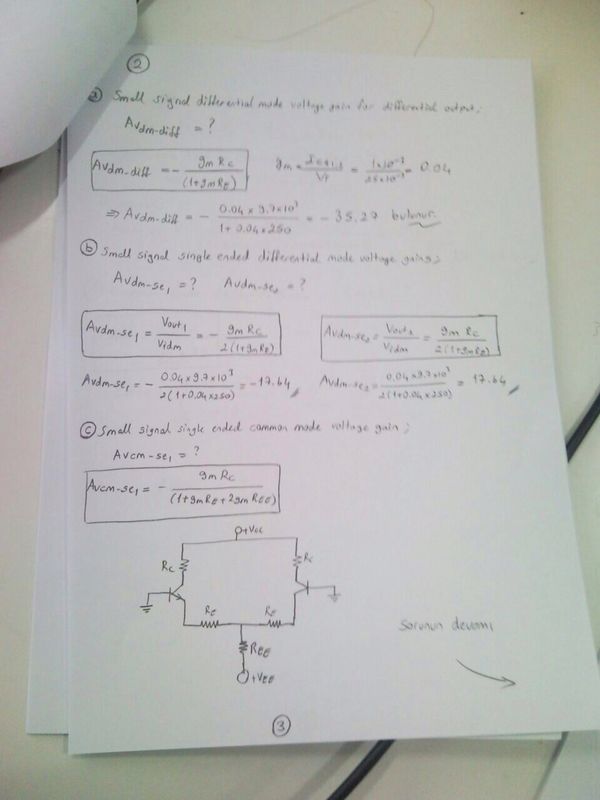 2
a) Small signal differential mode voltage gain for differential output;
Avdm-diff = ?
Avdm-diff = - gmRc / (1+gmRE) gm = / VT = 1x10⁻³ / 25x10⁻³ = 0.04
⇒ Avdm-diff = - 0.04 x 9.7x10³ / 1 + 0.04 x 250 = - 35.27 bulunur.
b) Small signal single ended differential mode voltage gains;
Avdm-se₁ = ? Avdm-se₂ = ?
Avdm-se₁ = Vout₁ / Vidm = - gmRc / 2(1+gmRE) Avdm-se₂ = Vout₂ / Vidm = gm Rc / 2(1+gmRE)
Avdm-se₁ = - 0.04 x 9.7x10³ / 2(1+0.04x250) = -17.64 Avdm-se₂ = 0.04 x 9.7x10³ / 2(1+0.04x250) = 17.64
c) Small signal single ended common mode voltage gain;
Avcm-se₁ = ?
Avcm-se₁ = - gmRc / (1+gmRE+2gmREE)
+Vcc
Rc Rc
RE RE
REE
+VEE
Sorunun devamı
3